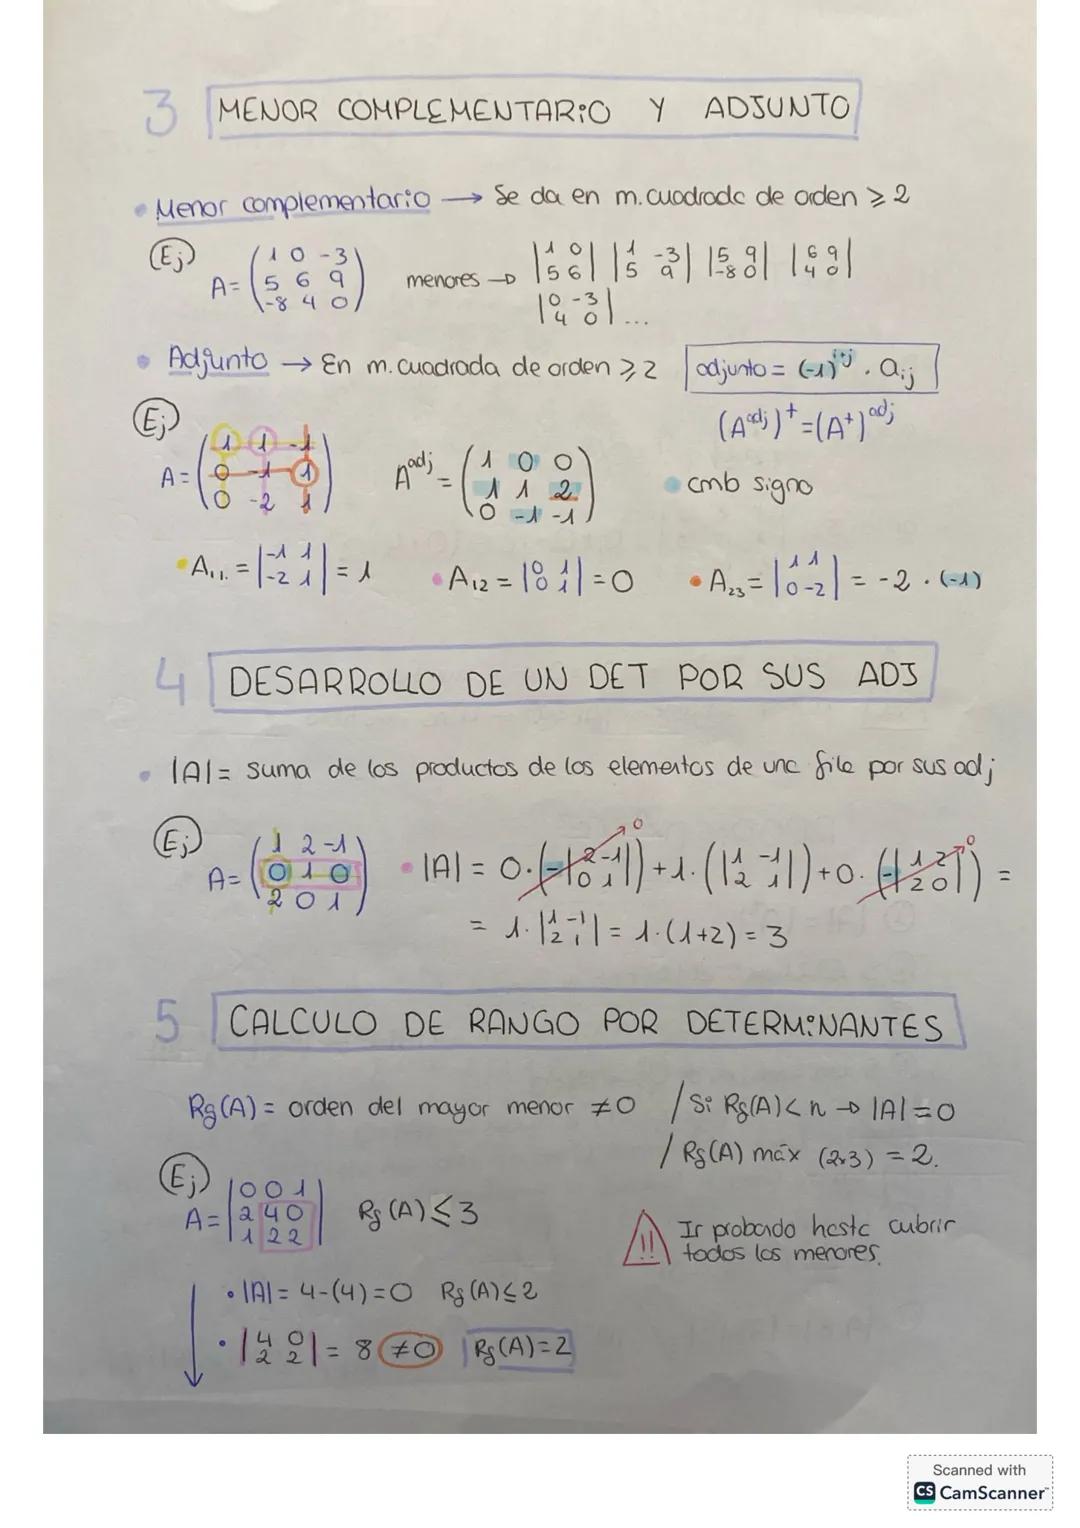 3 MENOR COMPLEMENTARIO Y ADJUNTO
• Menor complementario → Se da en m. cuadrada de orden ⩾ 2
Ej) A = (1 0 -3 / 5 6 9 / -8 4 0) menores → |1 0 / 5 6| |1 -3 / 5 9| |5 9 / -8 0| |6 9 / 4 0|
|0 -3 / 4 0| ...
• Adjunto → En m. cuadrada de orden ⩾ 2 adjunto = (-1)^i+j . a_ij
(A^adj)^t = (A^t)^adj
Ej) A = (1 1 -1 / 0 -1 1 / 0 -2 1) A^adj = (1 0 0 / 1 1 2 / 0 -1 -1) • cmb signo
• A_11. = |-1 1 / -2 1| = 1 • A_12 = |0 1 / 0 1| = 0 • A_23 = |1 1 / 0 -2| = -2 . (-1)
4 DESARROLLO DE UN DET POR SUS ADJ
• |A| = suma de los productos de los elementos de una fila por sus adj
Ej) A = (1 2 -1 / 0 1 0 / 2 0 1) • |A| = 0·(-|2 -1 / 0 1|) + 1·(|1 -1 / 2 1|) + 0·(-|1 2 / 2 0|) =
0 0
= 1·|1 -1 / 2 1| = 1·(1+2) = 3
5 CALCULO DE RANGO POR DETERMINANTES
Rg(A) = orden del mayor menor ≠0 / Si Rg(A) < n → |A| = 0
/ Rg(A) máx (2x3) = 2.
Ej) A = |0 0 1 / 2 4 0 / 1 2 2| Rg(A) ⩽ 3
!! Ir probando hasta cubrir
todos los menores.
• |A| = 4-(4) = 0 Rg(A) ⩽ 2
• |4 0 / 2 2| = 8 ≠0 Rg(A)=2
Scanned with
CS CamScanner